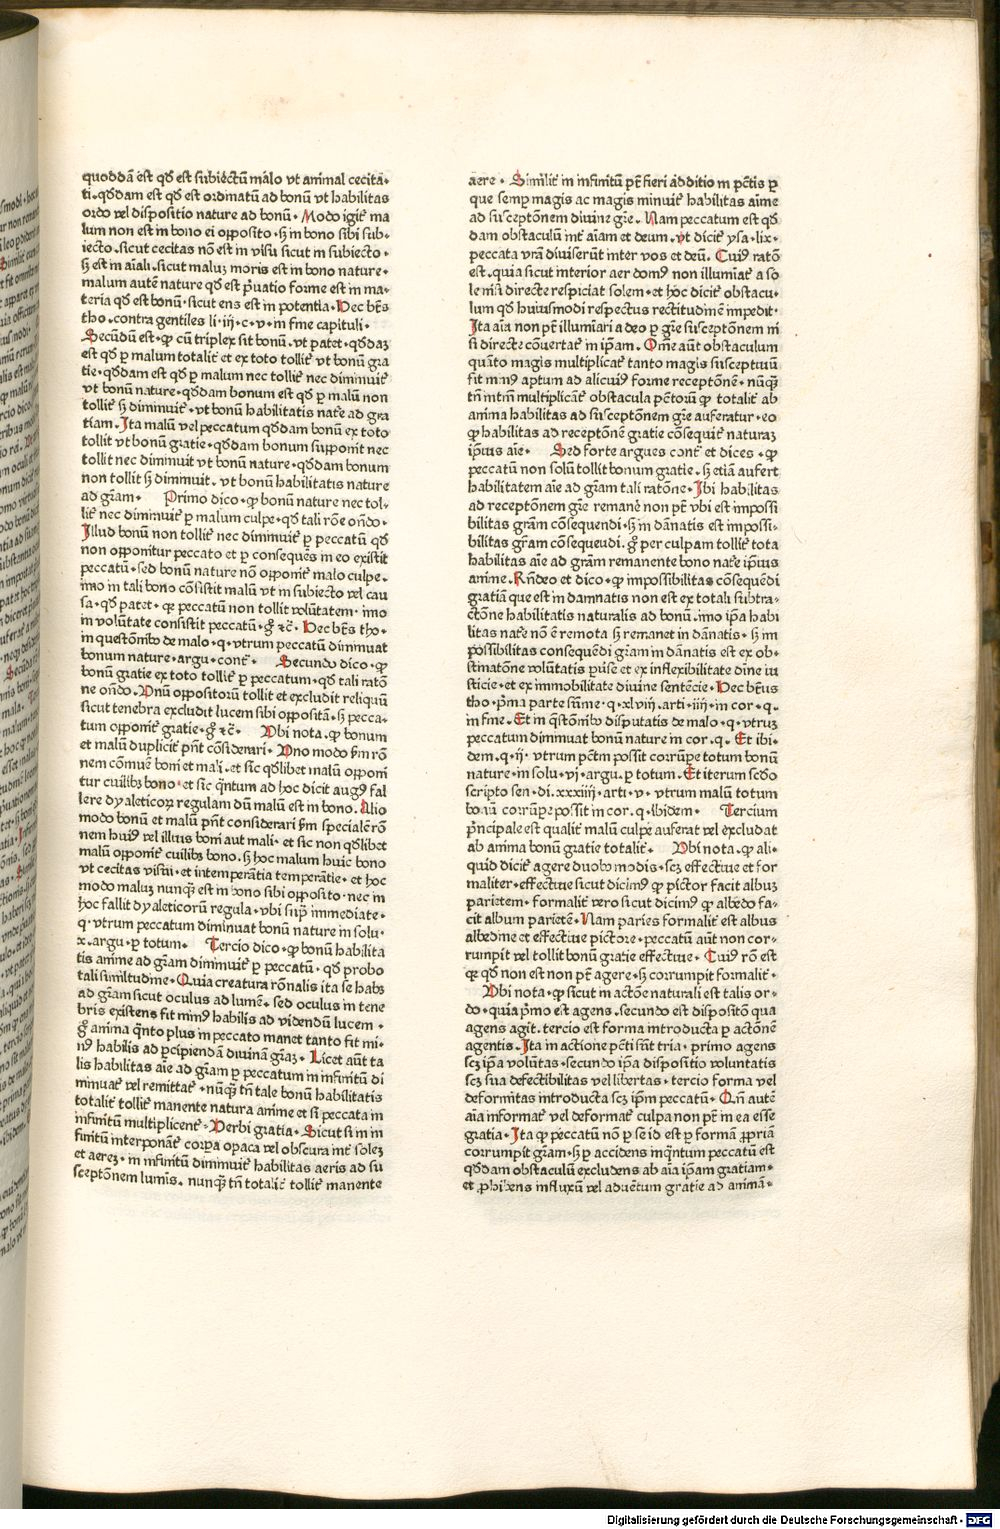 quoddā est qd est subiectū malo vt animal cecita-
ti. qddam est qd est ordinatū ad bonū vt habilitas
ordo vel dispositio nature ad bonū. Modo igit̄ ma
lum non est in bono ei opposito. sȝ in bono sibi sub-
iecto. sicut cecitas nō est in visu sicut in subiecto.
sȝ est in aīali. sicut maluȝ moris est in bono nature.
malum autē nature qd est pͥuatio forme est in ma-
teria qd est bonū. sicut ens est in potentia. Hec bt̄s
tho. contra gentiles li. iij. c. v. in fine capituli.
Secūdūm est. ꝙ cū triplex sit bonū. vt patet. qddaȝ
est qd ꝑ malum totalit̄ et ex toto tollit̄ vt bonū gra
tie. qddam est qd ꝑ malum nec tollit̄ nec diminuit̄
vt bonū nature. qddam bonum est qd ꝑ malū non
tollit̄ sȝ diminuit̄. vt bonū habilitatis nat̄e ad gra
tiam. Ita malū vel peccatum qddam bonū ex toto
tollit vt bonū gratie. qddam bonum supponit nec
tollit nec diminuit vt bonū nature. qddam bonum
non tollit sȝ diminuit. vt bonū habilitatis nature
ad grām. Primo dico. ꝙ bonū nature nec tol-
lit̄ nec diminuit̄ ꝑ malum culpe. qd tali rōe oñdo.
Illud bonū non tollit̄ nec diminuit̄ ꝑ peccatū qd
non opponitur peccato et ꝑ consequēs in eo existit
peccatū. sed bonū nature nō opponit̄ malo culpe.
imo in tali bono cōsistit malū vt in subiecto vel cau
sa. qd patet. qꝛ peccatū non tollit volūtatem. imo
in volūtate consistit peccatū. gͦ ꝛc̄. Hec bt̄s tho.
in questōnibꝰ de malo. q. vtrum peccatū diminuat
bonum nature. argu. cont̄. Secundo dico. ꝙ
bonū gratie ex toto tollit̄ ꝑ peccatum. qd tali ratō
ne oñdo. Vnū oppositorū tollit et excludit reliquū
sicut tenebra excludit lucem sibi oppositā. sȝ pecca-
tum opponit̄ gratie. gͦ ꝛc̄. Vbi nota. ꝙ bonum
et malū duplicit̄ pn̄t cōsiderari. Vno modo ẜm rō
nem cōmuē boni et mali. et sic qdlibet malū opponi
tur cuilibꝫ bono. et sic qͣntum ad hoc dicit augꝰ fal
lere dyaleticoꝝ regulam dū malū est in bono. Alio
modo bonū et malū pn̄t considerari ẜm specialē rō
nem huiꝰ vel illius boni aut mali. et sic non qdlibet
malū opponit̄ cuilibꝫ bono. sȝ hoc malum huic bono
vt cecitas visui. et intemperātia temperātie. et hoc
modo maluȝ nunqͣȝ est in bono sibi opposito. nec in
hoc fallit dyaleticorū regula. vbi supͣ immediate.
q. vtrum peccatum diminuat bonū nature in solu.
x. argu. ꝑ totum. Tercio dico. ꝙ bonū habilita
tis anime ad grām diminuit̄ ꝑ peccatū. qd probo
tali similtudine. Quia creatura rōnalis ita se habꝫ
ad grām sicut oculus ad lumē. sed oculus in tene
bris existens fit minꝰ habilis ad videndū lucem.
gͦ anima qͣnto plus in peccato manet tanto fit mi-
nꝰ habilis ad ꝑcipiendā diuinā grāȝ. Licet aūt ta
lis habilitas aīe ad grām ꝑ peccatum in infinitū di
minuat̄ vel remittat̄. nunqͣȝ tn̄ tale bonū habilitatis
totalit̄ tollit̄ manente natura anime et si peccata in
infinitū multiplicent̄. Verbi gratia. Sicut si in in
finitū interponāt̄ corpa opaca vel obscura int̄ soleȝ
et aereȝ. in infinitū diminuit̄ habilitas aeris ad su
sceptōnem lumīs. nunqͣȝ tn̄ totalit̄ tollit̄ manente
aere. Similit̄ in infinitū pt̄ fieri additio in pctīs ꝑ
que semꝑ magis ac magis minuit̄ habilitas aīme
ad susceptōnem diuine grīe. Nam peccatum est qd
dam obstaculū int̄ aīam et deum. vt dicit̄ ysa. lix.
peccata vrā diuiserūt inter vos et deū. Cuiꝰ ratō
est. quia sicut interior aer domꝰ non illumīat̄ a so
le nisi directe respiciat solem. et hoc dicit̄ obstacu-
lum qd huiusmodi respectus rectitudinē impedit.
Ita aīa non pt̄ illumīari a deo ꝑ grīe susceptōnem ni
si directe cōuertat̄ in ipam. Oīne aūt obstaculum
quāto magis multiplicat̄ tanto magis susceptiuū
fit minꝰ aptum ad alicuiꝰ forme receptōnē. nūqͣȝ
tn̄ intm̄ multiplicāt̄ obstacula pctōrū ꝙ totalit̄ ab
anima habilitas ad susceptōnem grīe auferatur. eo
ꝙ habilitas ad receptōnē gratie cōsequit̄ naturaȝ
ipius aīe. Sed forte argues cont̄ et dices. ꝙ
peccatū non solū tollit bonum gratie. sȝ etiā aufert
habilitatem aīe ad grām tali ratōne. Ibi habilitas
ad receptōnem grīe remanē non pt̄ vbi est impossi
bilitas grām cōsequendi. sȝ in dānatis est impossi-
bilitas grām cōsequeudi. gͦ per culpam tollit̄ tota
habilitas aīe ad grām remanente bono nat̄e ipius
anime. Rñdeo et dico. ꝙ impossibilitas cōsequēdi
gratiā que est in damnatis non est ex totali subtra-
ctōne habilitatis naturalis ad bonū. imo ipa habi
litas nat̄e nō ē remota sȝ remanet in dānatis. sȝ im
possibilitas consequēdi grām in dānatis est ex ob-
stinatōne volūtatis puͥse et ex inflexibilitate dīne iu
sticie. et ex immobilitate diuine sentēcie. Hec bt̄us
tho. pͥma parte sūme. q. xlviij. arti. iiij. in cor. q.
in fine. Et in qͣstōnibꝰ disputatis de malo. q. vtruȝ
peccatum diminuat bonū nature in cor. q. Et ibi-
dem. q. ij. vtrum pctm̄ possit corrūpe totum bonū
nature. in solu. vj. argu. ꝑ totum. Et iterum scdo
scripto sen. di. xxxiiij. arti. v. vtrum malū totum
bonū corrūpe possit in cor. q. ibidem. Tercium
pͥncipale est qualit̄ malū culpe auferat vel excludat
ab anima bonū gratie totalit̄. Vbi nota. ꝙ ali-
quid dicit̄ agere duobꝰ modis. scȝ effectiue et for
maliter. effectiue sicut dicimꝰ ꝙ pictor facit albuȝ
parietem. formalit̄ vero sicut dicimꝰ ꝙ albedo fa-
cit album parietē. Nam paries formalit̄ est albus
albedine et effectiue pictore. peccatū aūt non cor-
rumpit vel tollit bonū gratie effectiue. Cuiꝰ rō est
qꝛ qd non est non pt̄ agere. sȝ corrumpit formalit̄.
Vbi nota. ꝙ sicut in actōne naturali est talis or-
do. quia pͥmo est agens. secundo est dispositō qua
agens agit. tercio est forma introducta ꝑ actōnē
agentis. Ita in actione pcti sūt tria. primo agens
scȝ ipa volūtas. secundo ipa dispositio voluntatis
scȝ sua defectibilitas vel libertas. tercio forma vel
deformitas introducta scȝ ipm peccatū. Qn̄ autē
aīa informat̄ vel deformat̄ culpa non pt̄ in ea esse
gratia. Ita ꝙ peccatū nō ꝑ se id est ꝑ formā ꝓpriā
corrumpit grām. sȝ ꝑ accidens inqͣntum peccatū est
qddam obstaculū excludens ab aīa ipam gratiam.
et ꝓhibens influxū vel aduētum gratie ad animā.
Digitalisierung gefördert durch die Deutsche Forschungsgemeinschaft - DFG